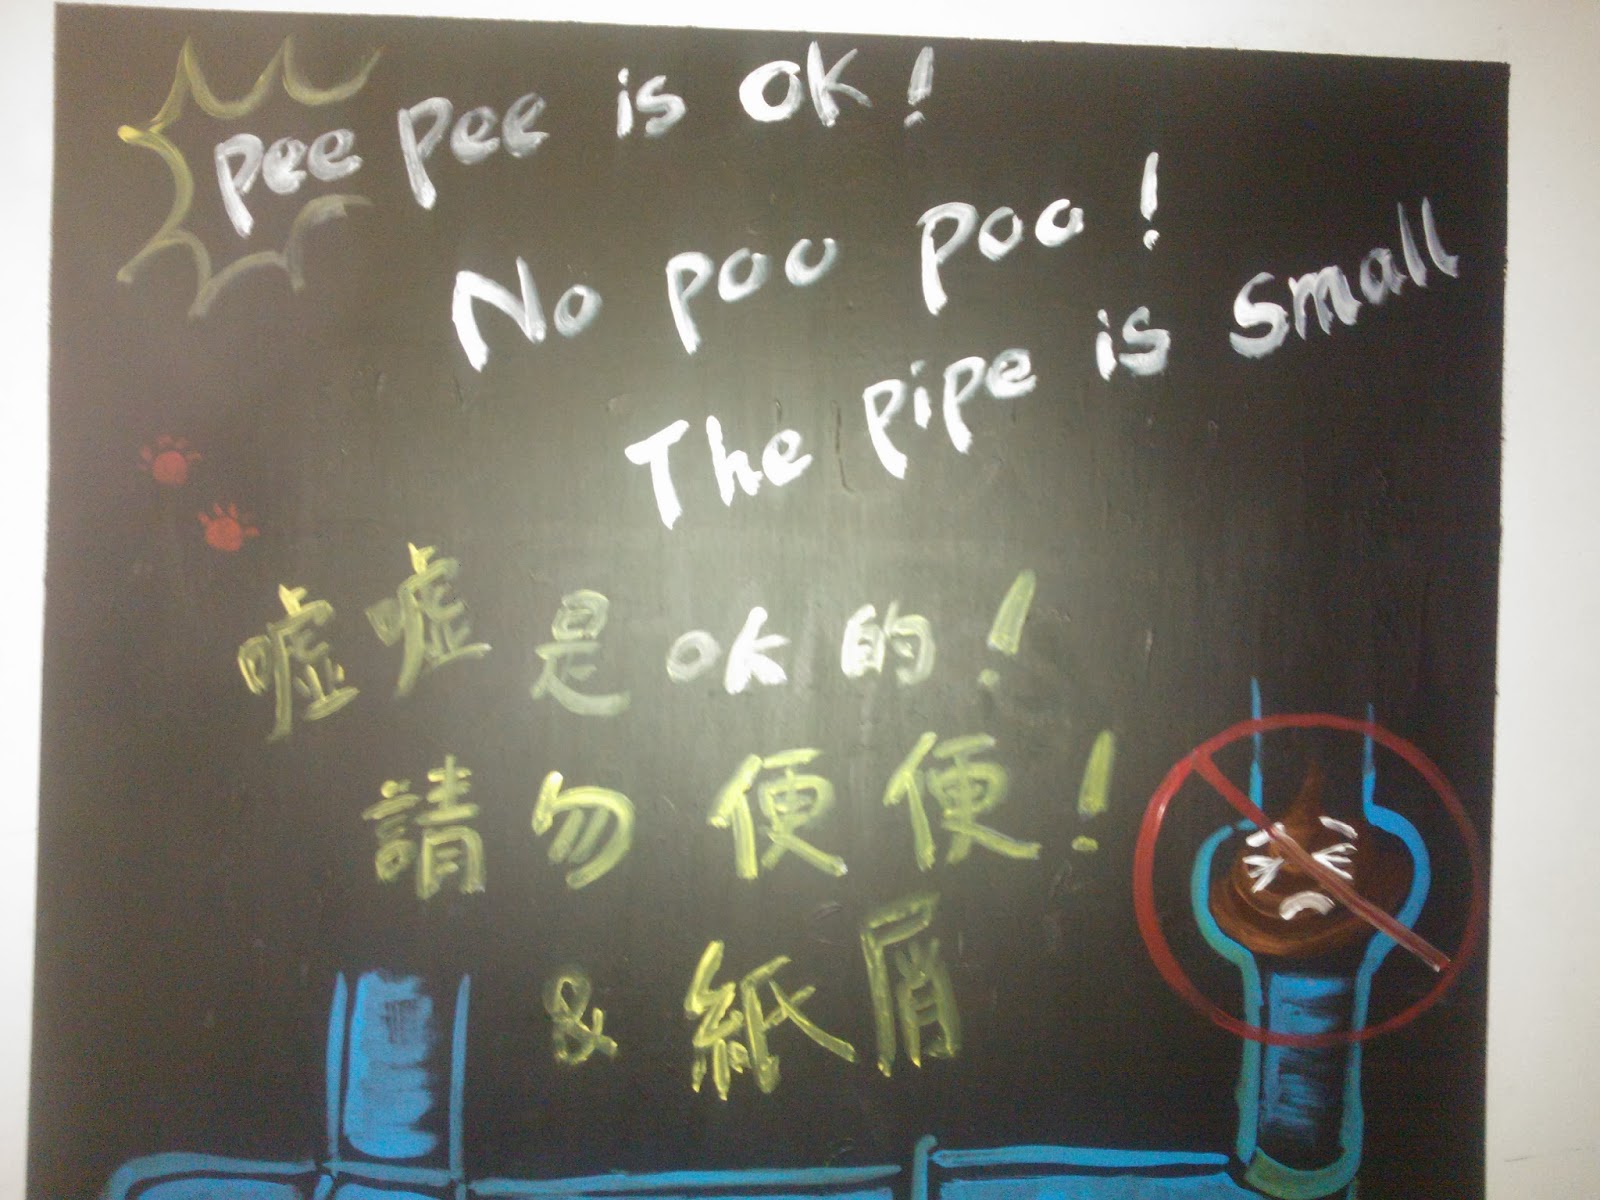 Pee Pee is OK!
No Poo Poo!
The pipe is small
噓噓是OK的!
請勿便便!
&紙屑